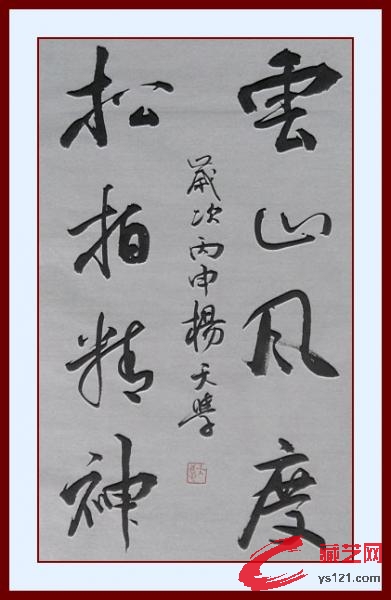 雲山风度
松柏精神
歲次丙申楊天學
藏艺网
ys121.com